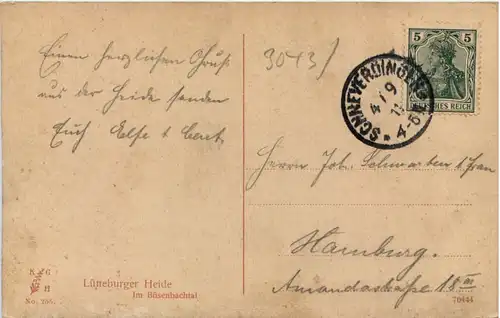 Einen herzlichen Gruß
aus der Heide senden
Euch Else &
3043/
5 5
DEUTSCHES REICH
SCHNEVERDINGEN
4/9
4-5
Herrn Joh. Schwarben & Frau
Hamburg.
Amandastraße 18
K G
H
No. 255.
Lüneburger Heide
Im Büsenbachtal
70444